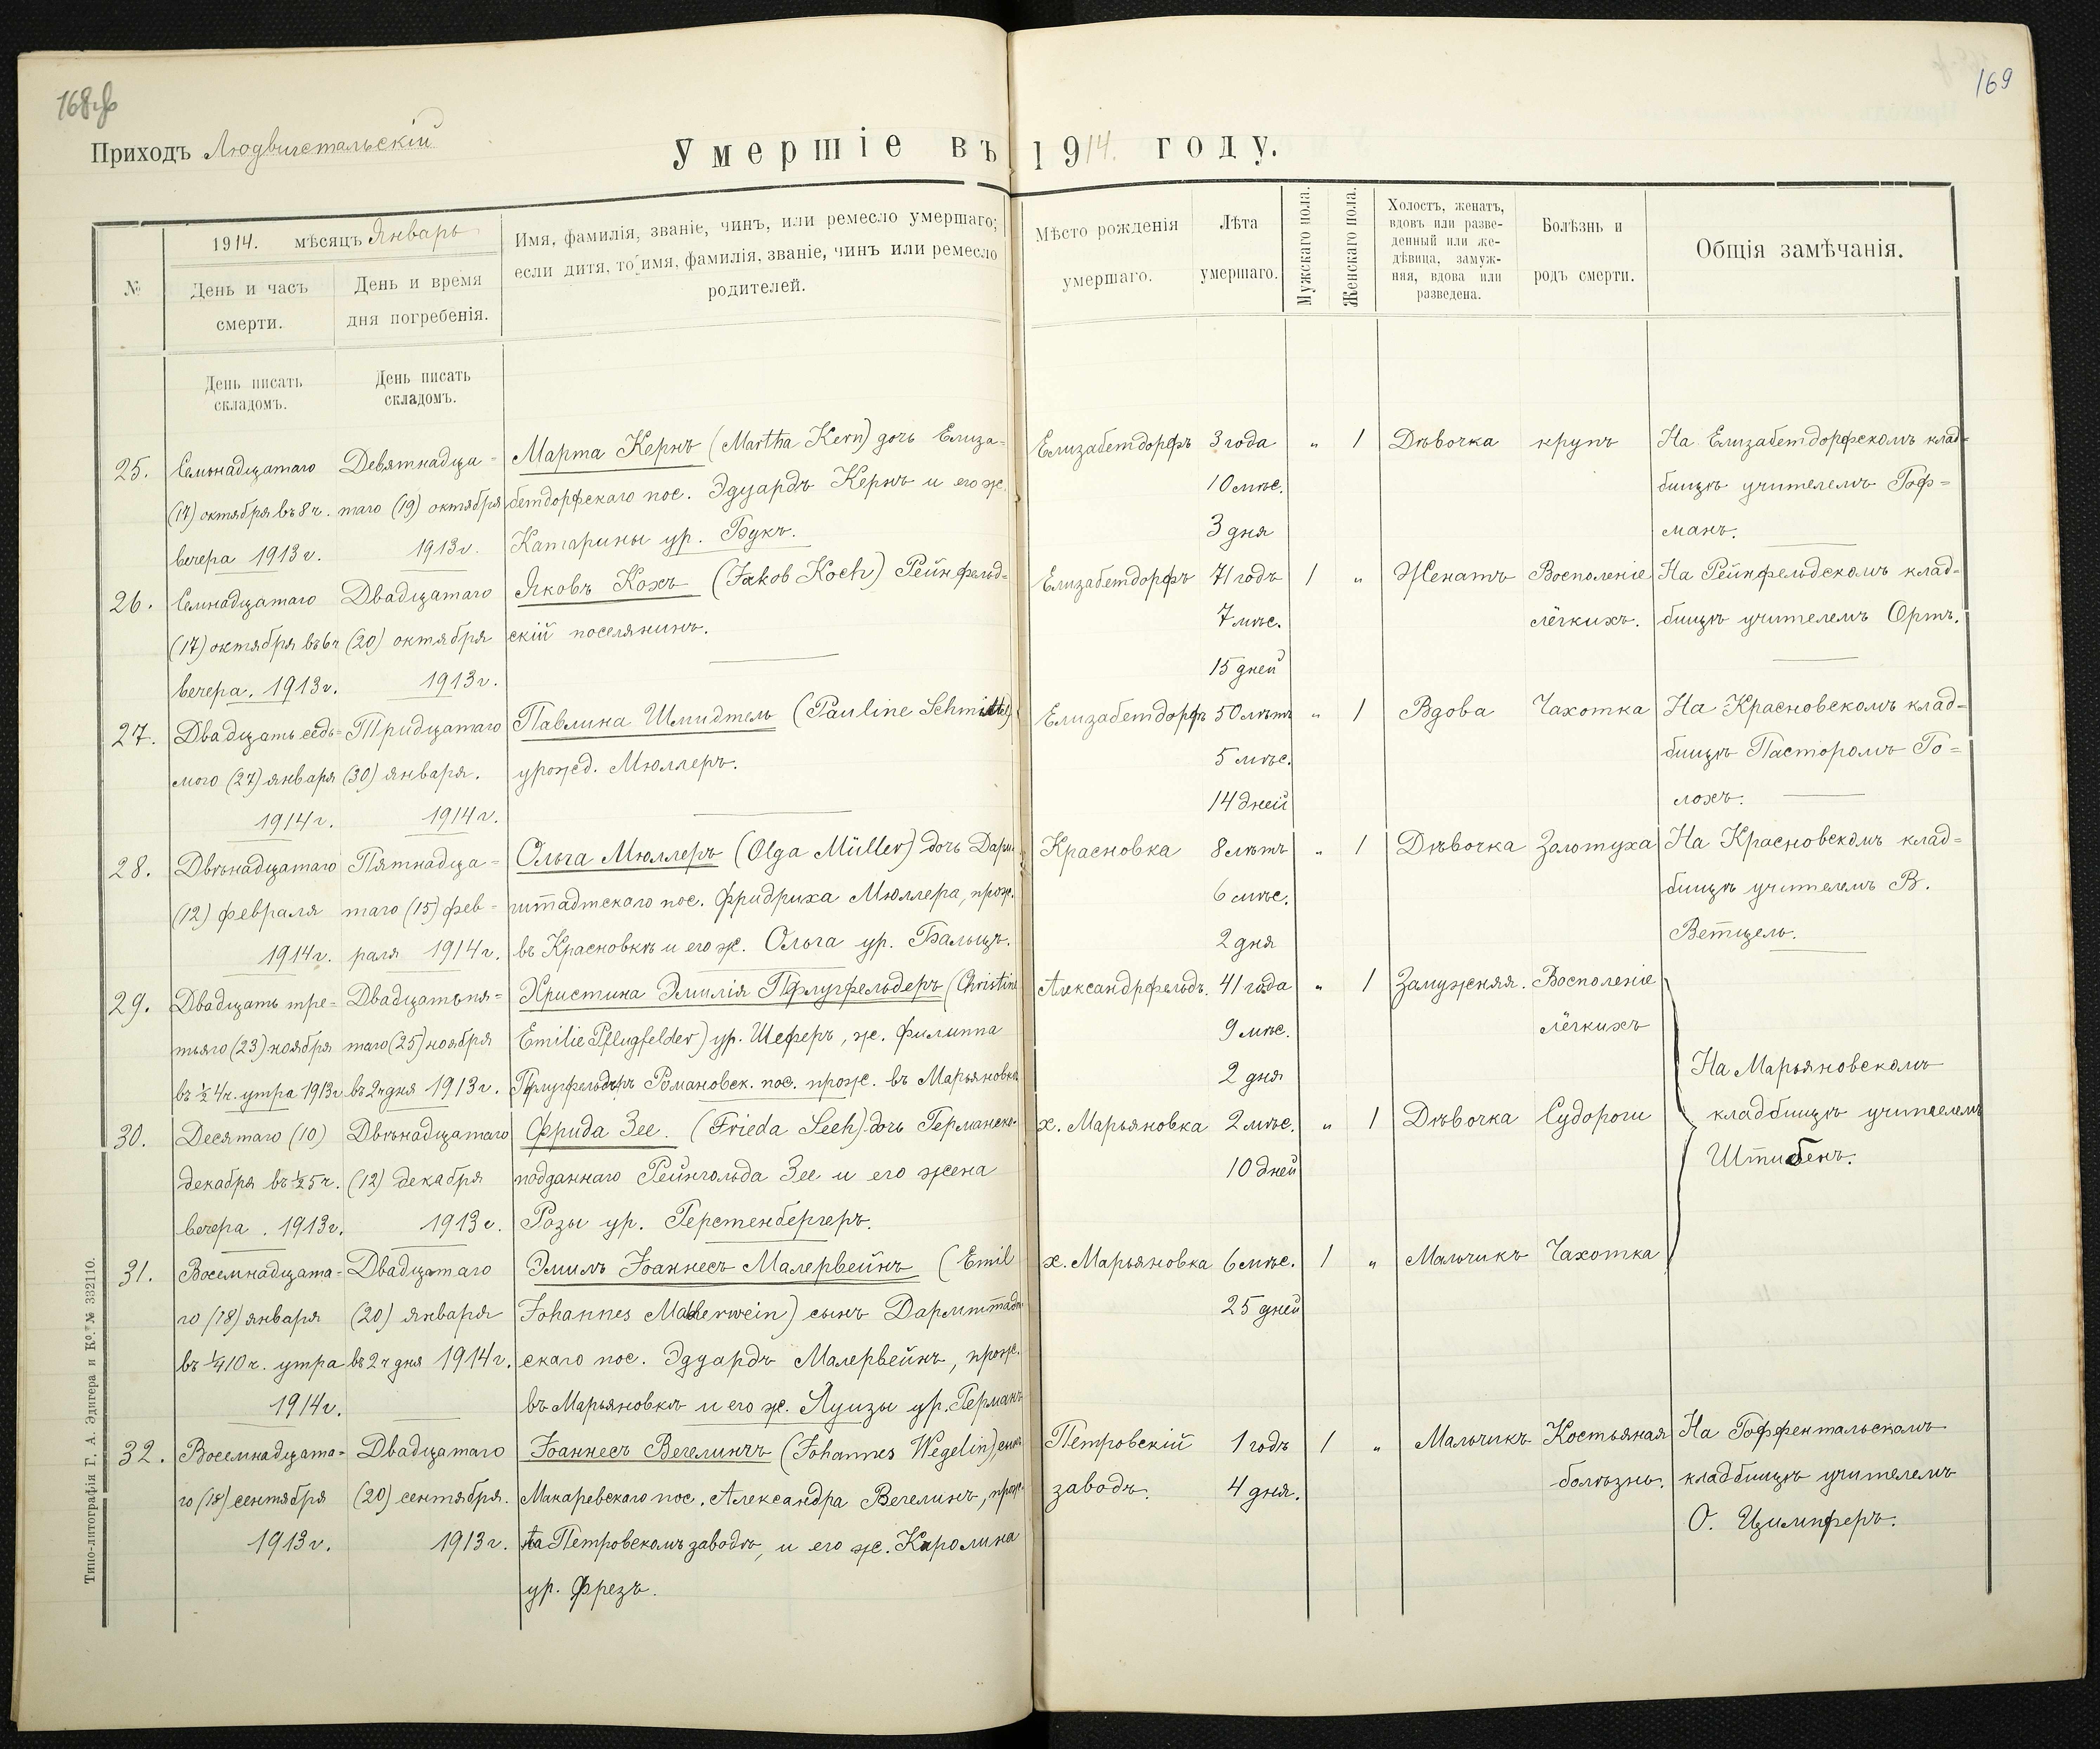 168об
169
Приходъ Людвигстальскій
Умершіе въ 1914. году.
№
1914. мѣсяцъ Январь
День и часъ
смерти.
День и время
дня погребенія.
Имя, фамилія, званіе, чинъ, или ремесло умершаго;
если дитя, то имя, фамилія, званіе, чинъ или ремесло
родителей.
Мѣсто рожденія
умершаго.
Лѣта
умершаго.
Мужскаго пола.
Женскаго пола.
Холостъ, женатъ,
вдовъ или разве-
денный или же-
дѣвица, замуж-
няя, вдова или
разведена.
Болѣзнь и
родъ смерти.
Общія замѣчанія.
День писать
складомъ.
День писать
складомъ.
25. Семьнадцатаго
(17) октября въ 8 ч.
вечера 1913 г.
Девятнадца-
таго (19) октября
1913 г.
Марта Кернъ (Martha Kern) дочь Елиза-
бетдорфскаго пос. Эдуардъ Кернъ и его ж.
Катарины ур. Букъ.
Елизабетдорфъ
3 года
10 мѣс.
3 дня
" 1 Дѣвочка крупъ
На Елизабетдорфскомъ клад-
бищѣ учителемъ Гоф-
манъ.
26. Семнадцатаго
(17) октября въ 6 ч
вечера. 1913 г.
Двадцатаго
(20) октября
1913 г.
Яковъ Кохъ (Jakob Koch) Рейнфельд-
скій поселянинъ.
Елизабетдорфъ
71 годъ
7 мѣс.
15 дней
1 " Женатъ
Восполеніе
лёгкихъ.
На Рейнфельдскомъ клад-
бищѣ учителемъ Ортъ.
27. Двадцать седь-
мого (27) января
1914 г.
Тридцатаго
(30) января.
1914 г.
Павлина Шмидтель (Pauline Schmidtel)
урожд. Мюллеръ.
Елизабетдорфъ
50 лѣтъ
5 мѣс.
14 дней
" 1 Вдова Чахотка
На Красновскомъ клад-
бищѣ Пасторомъ Го-
лохъ.
28. Двѣнадцатаго
(12) февраля
1914 г.
Пятнадца-
таго (15) фев-
раля 1914 г.
Ольга Мюллеръ (Olga Müller) дочь Дарм-
штадтскаго пос. Фридриха Мюллера, прож.
въ Красновкѣ и его ж. Ольга ур. Бальцъ.
Красновка
8 лѣтъ
6 мѣс.
2 дня
" 1 Дѣвочка Золотуха
На Красновскомъ клад-
бищѣ учителемъ В.
Ветцель.
29. Двадцать тре-
тьяго (23) ноября
въ ½ 4 ч. утра 1913 г
Двадцатьпя-
таго (25) ноября
въ 2 ч дня 1913 г.
Христина Эмилія Пфлугфельдеръ (Christine
Emilie Pflugfelder) ур. Шеферъ, ж. Филиппа
Пфлугфельдеръ Романовск. пос. прож. въ Марьяновкѣ
Александрфельдъ.
41 года
9 мѣс.
2 дня
" 1 Замужняя.
Восполеніе
лёгкихъ
На Марьяновскомъ
кладбищѣ учителемъ
Штибенъ.
30. Десятаго (10)
декабря въ ½ 5 ч.
вечера. 1913 г.
Двѣнадцатаго
(12) декабря
1913 г.
Фрида Зее. (Frieda Seeh) дочь Германско-
подданнаго Рейнгольда Зее и его жена
Розы ур. Герстенбергеръ.
х. Марьяновка
2 мѣс.
10 дней
" 1 Дѣвочка Судороги
31. Восемнадцата-
го (18) января
въ ¼ 10 ч. утра
1914 г.
Двадцатаго
(20) января
въ 2 ч дня 1914 г.
Эмилъ Іоаннесъ Малервейнъ (Emil
Johannes Mallerwein) сынъ Дармштадт-
скаго пос. Эдуардъ Малервейнъ, прож.
въ Марьяновкѣ и его ж. Луизы ур. Германъ
х. Марьяновка
6 мѣс.
25 дней
1 " Мальчикъ Чахотка
32. Восемнадцата-
го (18) сентября
1913 г.
Двадцатаго
(20) сентября.
1913 г.
Іоаннесъ Вегелинъ (Johannes Wegelin), сынъ
Макаревскаго пос. Александра Вегелинъ, прож.
на Петровскомъ заводѣ, и его ж. Каролина
ур. Фрезъ.
Петровскій
заводъ.
1 годъ
4 дня.
1 " Мальчикъ
Костьяная
болѣзнь.
На Гоффентальскомъ
кладбищѣ учителемъ
О. Цимпферъ.
Типо-литографія Г. А. Эдигера и Ко. № 332110.